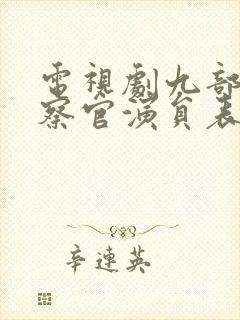 電視劇九部
察官演員表
辛連英